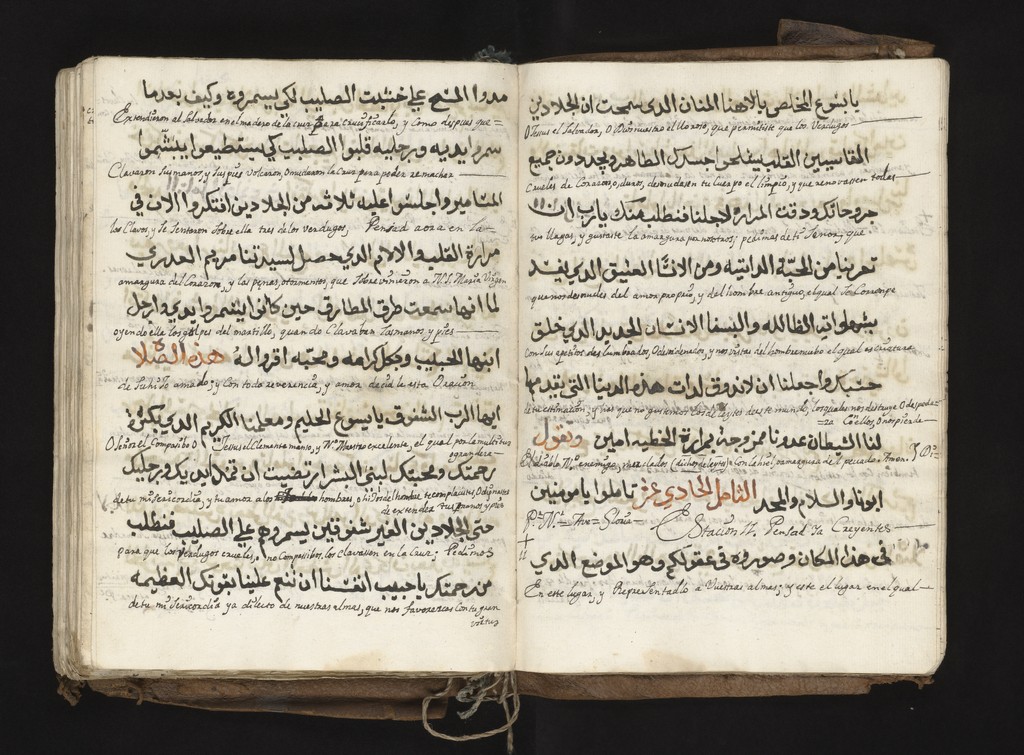 مدوا المسيح علي خشبت الصليب لكي يسمروه وكيف بعدما
Extendieron al Salvador en el madero de la cruz para crucificarlo, y como despues que
سمروا يديه ورجليه قلبوا الصليب كي يستطيعوا يبشموا
Clavaron sus manos, y sus pies volcaron, o mudaron la Cruz para poder remachar
المسامير واجلسوا عليه ثلاثه من الجلادين افتكروا الان في
los Clavos, y se sentaron sobre ella tres de los verdugos, Pensad aora en la
مرارة القلب والالام الدي حصل لسيدتنا مريم العدري
amargura del Corazon, y las penas, o tormentos, que sobrevinieron a N. S. Maria Virgen
لما انها سمعت طرق المطارق حين كانوا يسمروا يدي وارجل
oyendo ella los golpes del martillo, quando Clavaban las manos, y pies
ابنها الحبيب وبكل كرامه ومحبه اقروا له هذه الصلاة
de su hijo amado, y con toda reverencia, y amor decid le esta Oracion
ايها الرب الشفوق يا يسوع الحليم ومعلمنا الكريم الدي بكثرة
O Señor el Compasibo O Jesus el Clemente manso, y Nro Maestro excelente, el qual por la multitud
o grandeza
رحمتك ومحبتك لبني البشر ارتضيت ان تمد ايديك ورجليك
de tu misericordia, y tu amor a los hombres, o hijos del hombre te complaciste, O dignaste
de extender tus manos y pies
حتي الجلادين الغير شفوقين يسمروهم علي الصليب فنطلب
para que los verdugos crueles, no Compasibos, los clavassen en la Cruz; Pedimos
من رحمتك يا حبيب انفسنا ان تنعم علينا بقوتك العظيمه
de tu misericordia ya dilecto de nuestras almas, que nos favorezcas con tu gran
virtud
يا يسوع المخلص يا لاهنا المنان الدي سمحت ان الجلادين
O Jesus el Salvador, O Dios nuestro el Uoroso, que permitiste que los Verdugos
المقاسيين القلب يفلحوا جسدك الطاهر ويجددون جميع
Crueles de Corazon, o duros, desnudasen tu Cuerpo el limpio, y que renovassen todas
جروحاتك ودقت المراره لاجلنا فنطلب منك يا رب ان
sus llagas, y gustaste la amargura por nosotros; pedimos de ti Señor, que
تعرينا من المحبة الداتيه ومن الانسان العتيق الدي يفسد
que nos desnudes del amor proprio, y del hombre antiguo, el qual se Corrompe
بشهواته الظالله والبسنا الانسان الجديد الدي خلق
حسبك واجعلنا ان لا ندوق لدات هذه الدنيا التي يقدمها
لنا الشيطان عدونا ممزوجة بمرارة الخطيه امين وتقول
ابونا والسلام والمجد التامل الحادي عشر تاملوا يا مومنين
Pr. Nr. Ave = Gloria = Estacion 11. Pensad Ya Creyentes
في هذا المكان وصوروه في عقولكم وهو الموضع الدي
En este lugar, y Representadlo a Vuestras almas; y este el lugar en el qual